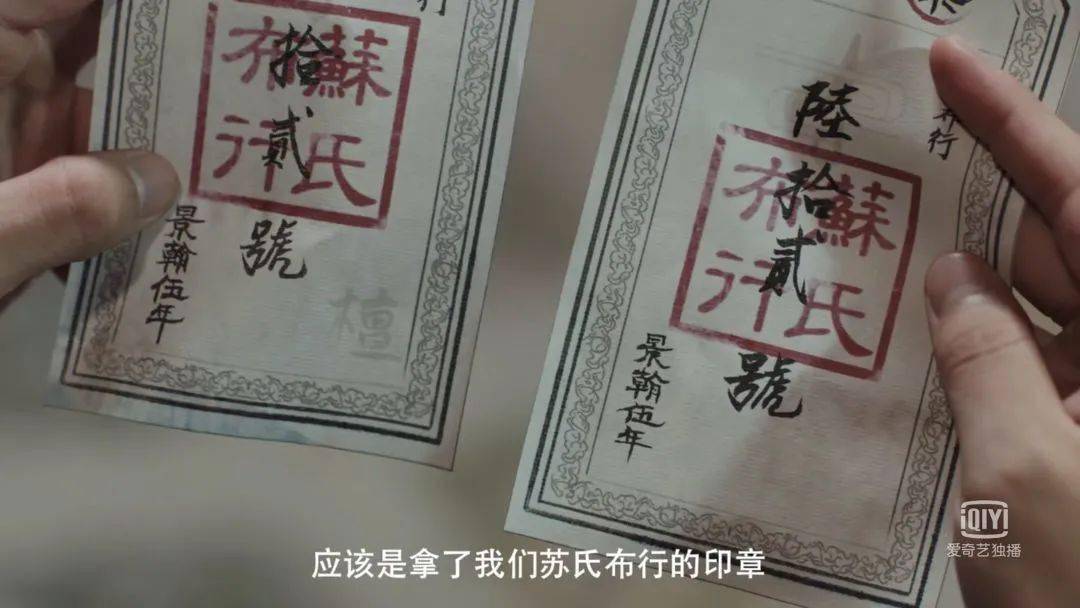 行
拾
貳
號
蘇氏
布行
景翰伍年
檀
布行
陸
拾
貳
號
蘇氏
布行
景翰伍年
iQIYI
爱奇艺独播
应该是拿了我们苏氏布行的印章